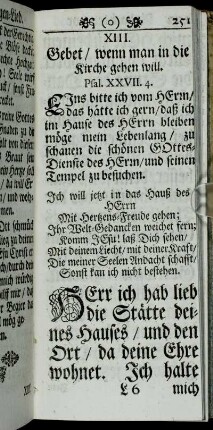 (o) 251
XIII.
Gebet / wenn man in die
Kirche gehen will.
Psal. XXVII. 4.
EIns bitte ich vom HErrn /
das hätte ich gern / daß ich
im Hauße des HErrn bleiben
möge mein Lebenlang / zu
schauen die schönen GOttes-
Dienste des HErrn / und seinen
Tempel zu besuchen.
Ich will jetzt in das Hauß des
HErrn
Mit Hertzens-Freude gehen;
Ihr Welt-Gedancken weichet fern;
Komm JEsu! laß Dich sehen /
Mit deinem Liecht / mit deiner Krafft /
Die meiner Seelen Andacht schafft /
Sonst kan ich nicht bestehen.
HErr ich hab lieb
die Stätte dei-
nes Hauses / und den
Ort / da deine Ehre
wohnet. Ich halte
L 6 mich